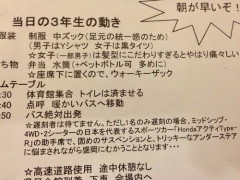 朝が早いぞ！
当日の3年生の動き
服装　制服　中ズック(足元の統一感のため)
(男子はYシャツ　女子は黒タイツ)
☆女子(一部男子)は髪型にこだわりすぎるとやはり痛い
ち物　弁当　水筒(+ペットボトル等も)
☆座席下に置くので、ウォーキーザック
ムテーブル
:30　体育館集合　トイレは済ませる
:40　点呼　暖かいバスへ移動
:50　バス絶対出発
☆遅刻者は待てません。ただし1名のみ遅刻の場合、ミッドシップ・
4WD・2シーターの日本を代表するスポーツカー「HondaアクティType-
R」の助手席で、固めのサスペンションと、トリッキーなアンダーステア
に悩まされながら盛岡にむかうこととなります・・・
☆高速道路使用　途中休憩なし